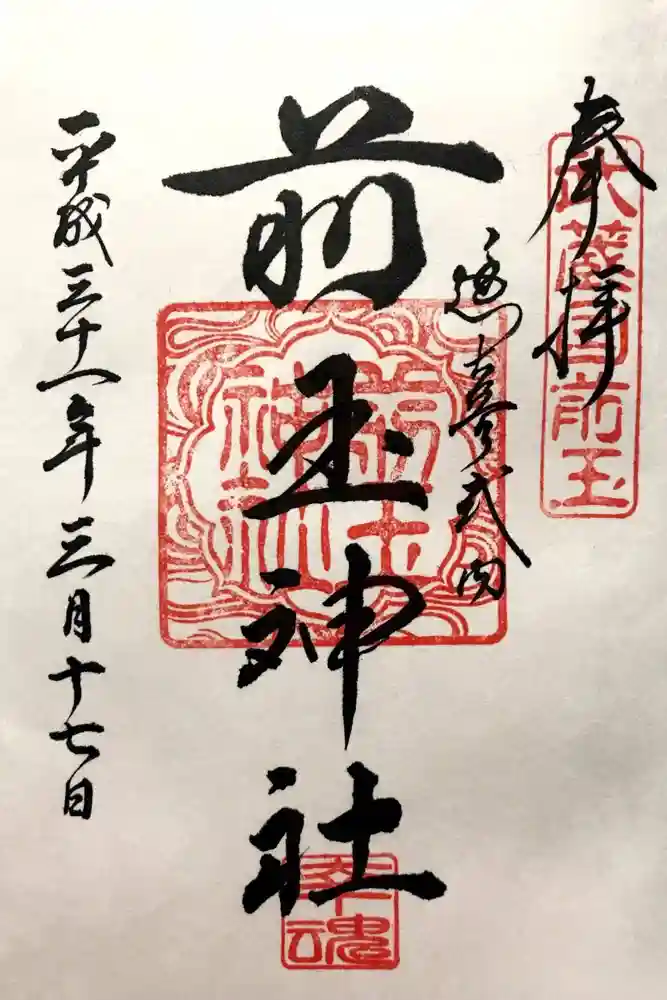 奉拝
武蔵国前玉
延喜式内
前玉神社
前玉
神社
幸魂
平成三十一年三月十七日